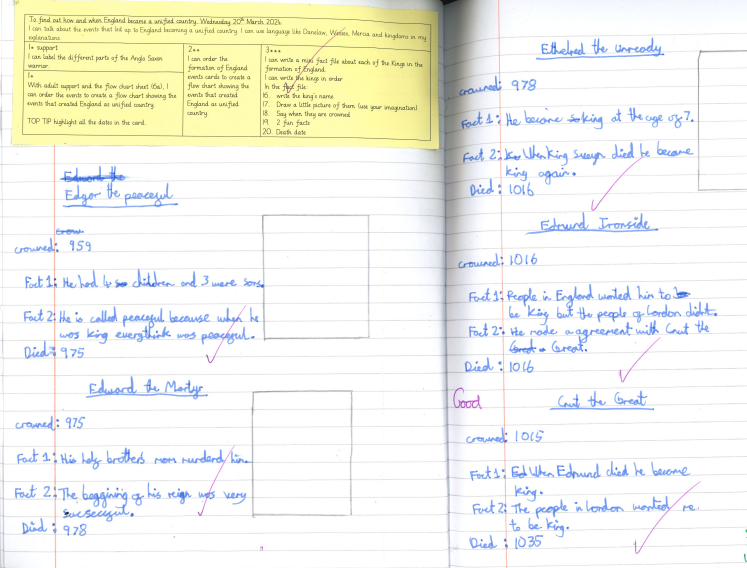 To find out how and when England became a unified country. Wednesday 20th March 2024
I can talk about the events that led up to England becoming a unified country. I can use language like Danelaw, Wessex, Mercia and kingdoms in my
explanations
1* support
I can label the different parts of the Anglo Saxon
warrior.
1*
With adult support and the flow chart sheet (6a), I
can order the events to create a flow chart showing the
events that created England as unified country.
TOP TIP highlight all the dates in the card.
2**
I can order the
formation of England
events cards to create a
flow chart showing the
events that created
England as unified
country
3***
I can write a mini fact file about each of the Kings in the
formation of England.
I can write the kings in order
In the fact file:
16. write the king's name
17. Draw a little picture of them (use your imagination)
18. Say when they are crowned
19. 2 fun facts
20. Death date
Edward the
Edgar the peaceful
crow
crowned: 959
Fact 1: He had 4 children and 3 were sons.
Fact 2: He is called peaceful because when he
was king everythink was peaceful.
Died: 975
Edward the Martyr
crowned: 975
Fact 1: His half brothers mom murderd him.
Fact 2: The beggining of his reign was very
sucsecsful.
Died: 978
Ethelred the unready
crowned: 978
Fact 1: He became so king at the age of 7.
Fact 2: When king sweyn died he became
king again.
Died: 1016
Edmund Ironside
crowned: 1016
Fact 1: People in England wanted him to
be king but the people of London didn't.
Fact 2: He made a agreement with Cnut the
Great.
Died: 1016
Good
Cnut the Great
crowned: 1015
Fact 1: Ed When Edmund died he became
king.
Fact 2: The people in London wanted
to be king.
Died: 1035